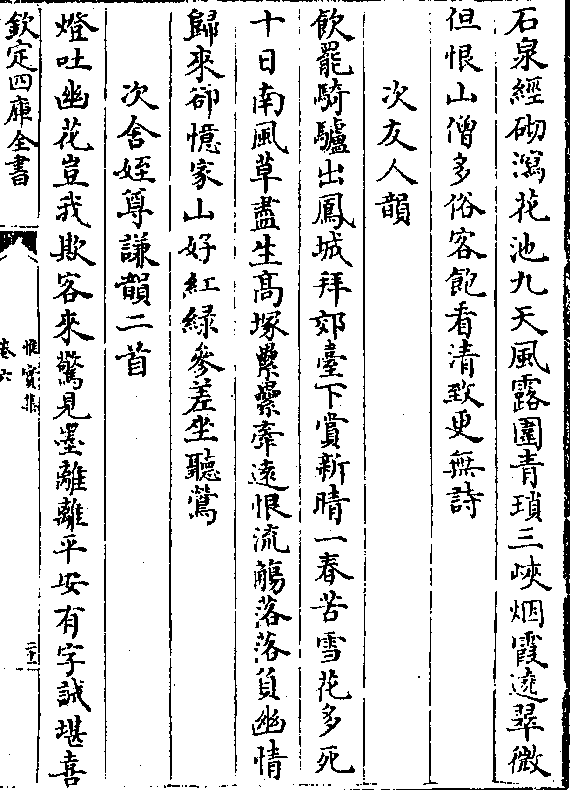 石泉經砌瀉花池九天風露圍青瑣三峽烟霞遶翠微
但恨山僧多俗客飽看清致更無詩
次友人韻
飲罷騎驢出鳳城拜郊臺下賞新晴一春苦雪花多死
十日南風草盡生高塚纍纍牽遠恨流觴落落負幽情
歸來卻憶家山好紅綠參差坐聽鶯
次舍姪尊謙韻二首
燈吐幽花豈我欺客來驚見墨離離平安有字誠堪喜
欽定四庫全書
惟實集
卷六